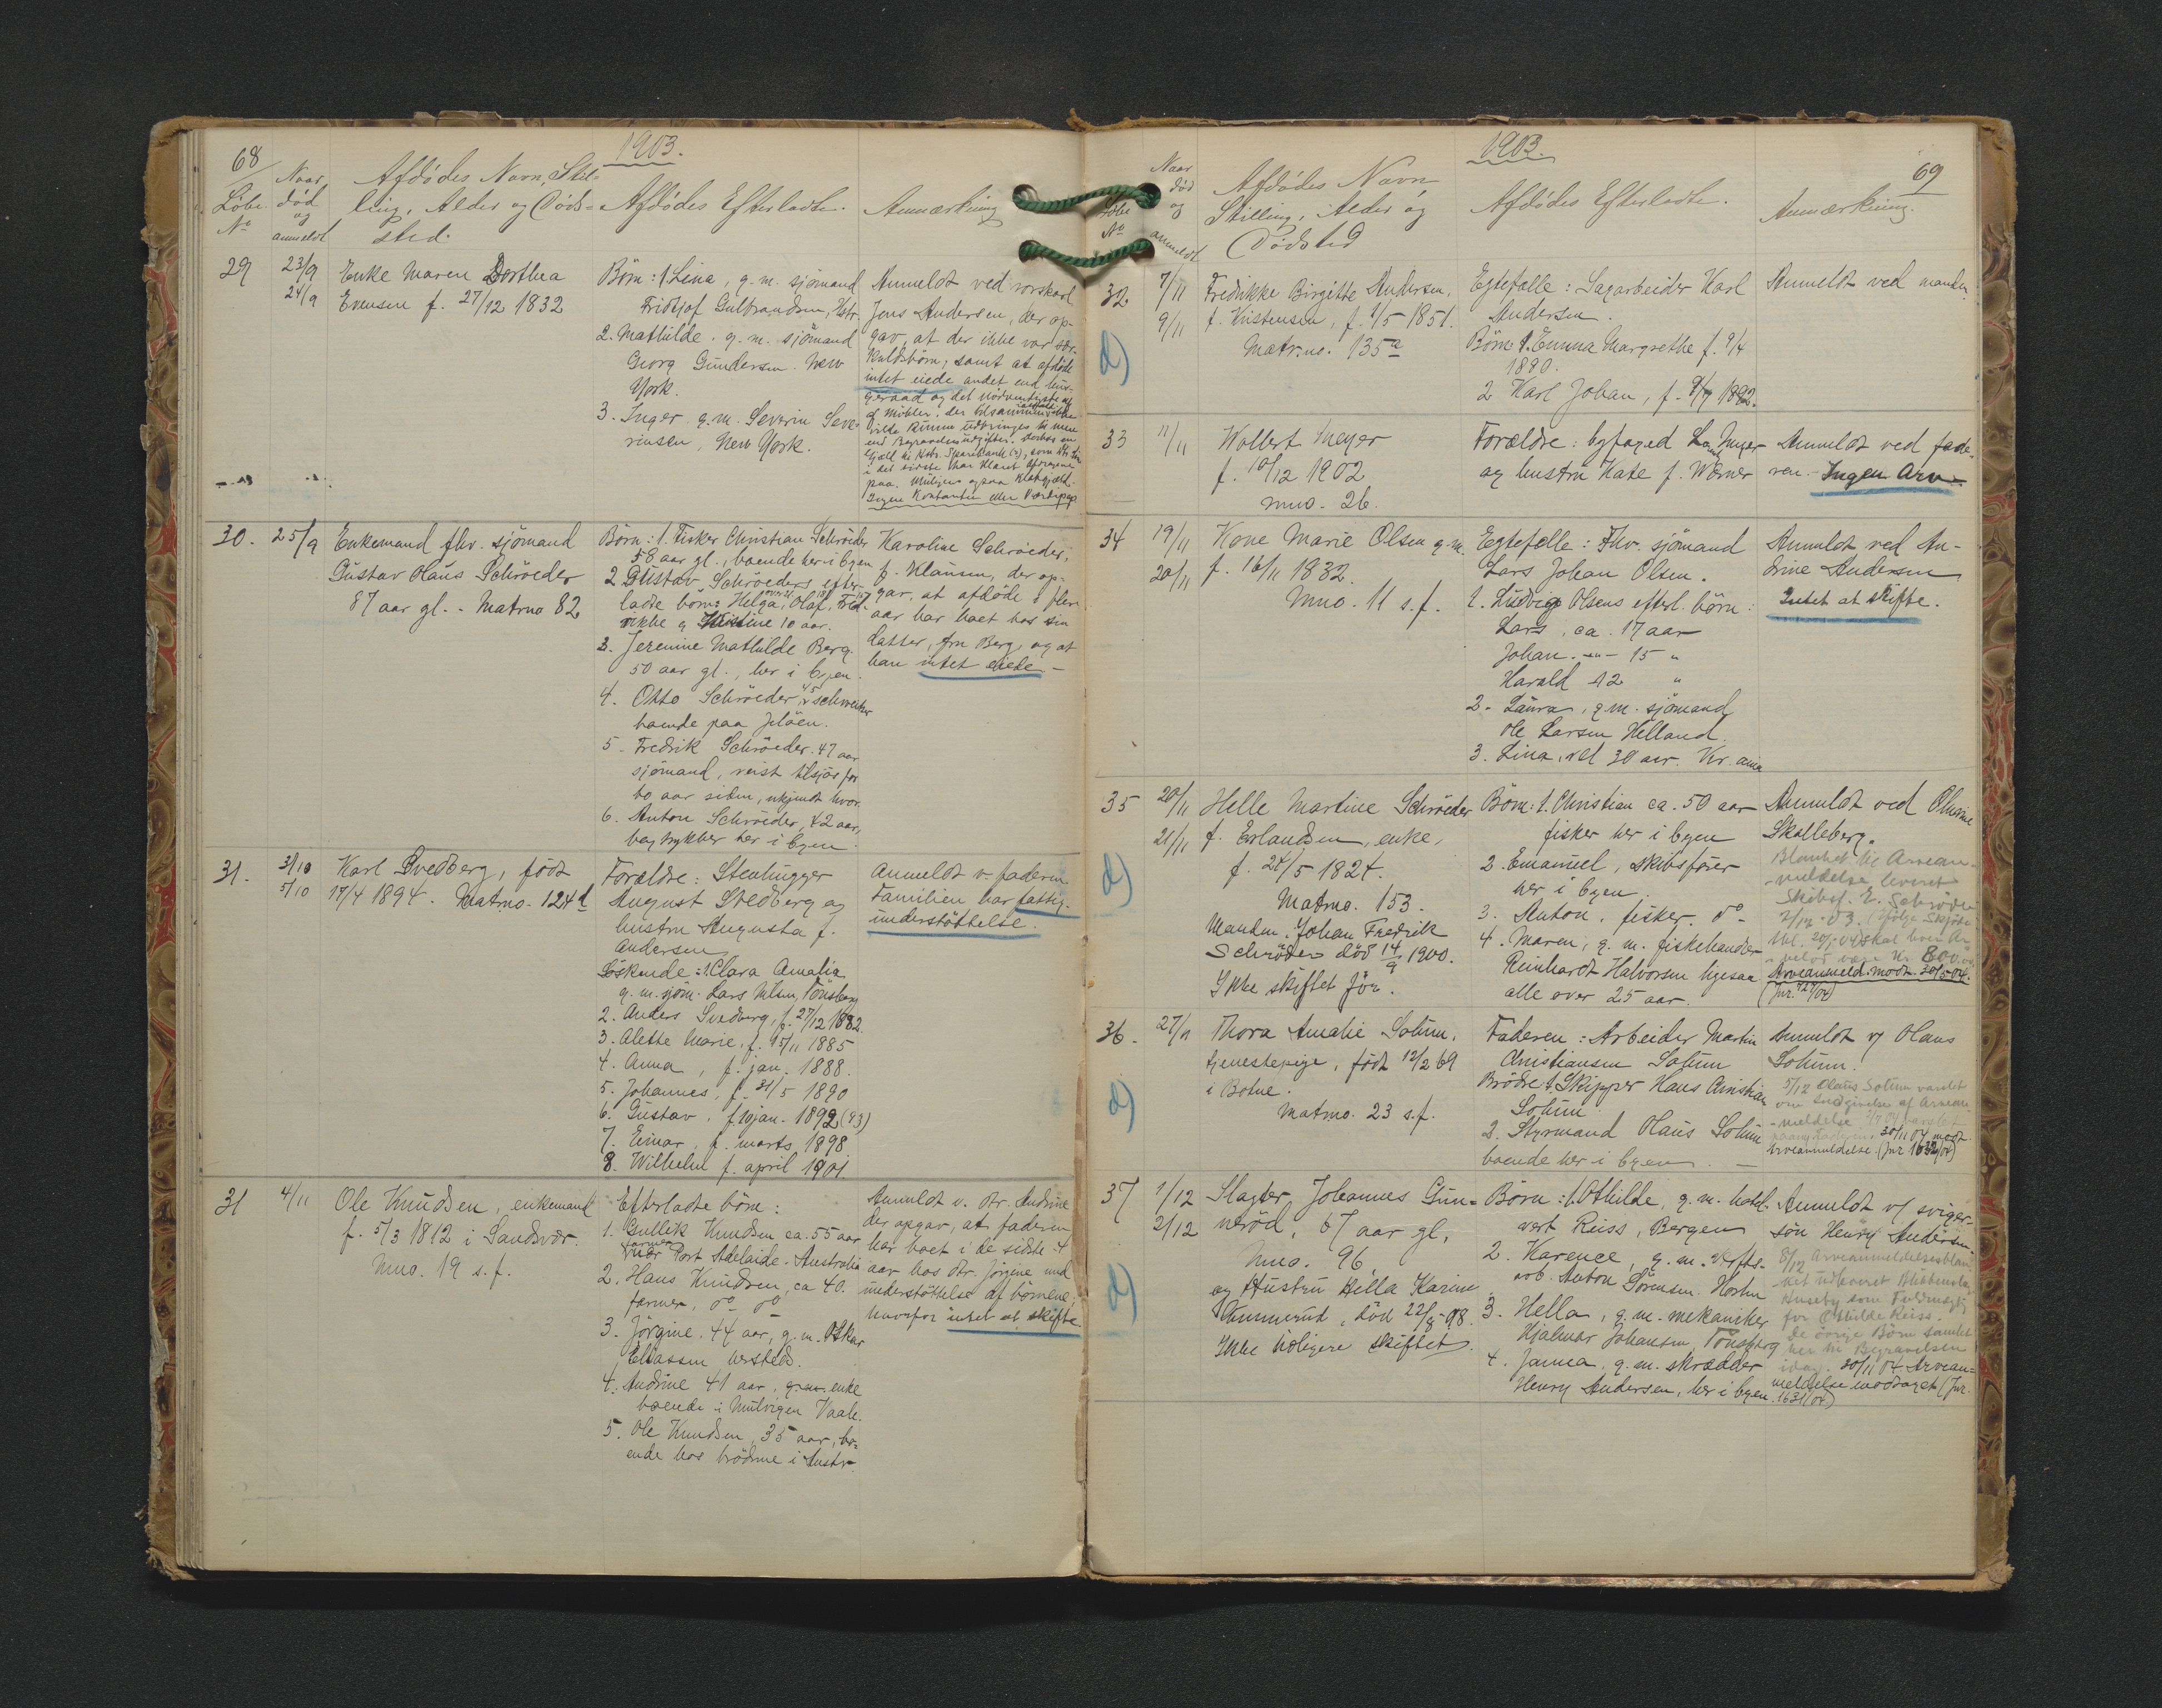 68
1903.
Løbe No
Naar død og anmeldt
Afdødes Navn, Stilling, Alder og Dødssted.
Afdødes Efterladte.
Anmærkning
29
23/9
24/9
Enke Maren Dorthea
Evensen f. 27/12 1832
Børn: 1. Lina, g. m. sjömand
Fridtjof Gulbrandsen, Hstr.
2. Mathilde, g. m. sjömand
Georg Gundersen. New
York.
3. Inger, g. m. Severin Seve-
rinsen, New York.
Anmeldt ved
Jens Andersen, der op-
gav, at der ikke var sær-
kuldsbörn; samt at afdöde
intet eiede andet end hus-
geraad og det nödvendigste
af möbler, der
vilde kunne udbringes til mere
end Begravelsesudgifter.
paa.
Ingen Kontanter eller Værdipap
30.
25/9
Enkemand fhv. sjömand
Gustav Olaus Schröeder
87 aar gl. - Matrno 82
Børn: 1. Fisker Christian Schröeder
58 aar gl., boende her i byen
2 Gustav Schröeders efter-
ladte börn: Helga, Olaf, Fred-
rikke og 10 aar.
3. Jeremine Mathilde Berg
50 aar gl., her i byen.
4. Otto Schröeder, 45
boende paa Jelöen.
5. Fredrik Schröeder. 47 aar
sjömand, reist tilsjös for
to aar siden, ukjendt hvor.
6. Anton Schröeder, 42 aar,
bogtrykker her i byen.
Karoline Schröeder,
f. Klausen, der op-
gav, at afdöde i flere
aar har boet hos sin
datter, fru Berg, og at
han intet eiede. -
31.
3/10
5/10
Karl Svedberg, födt
17/4 1894. Matrno. 124 d
Forældre: Stenhugger
August Svedberg og
hustru Augusta f.
Andersen
Söskende: 1. Clara Amalia
g. m. sjöm. Lars Nilsen, Tönsberg
2. Anders Svedberg, f. 27/12 1882.
3. Alette Marie, f. 15/11 1885
4. Anna, f. jan. 1888.
5. Johannes, f. 31/5 1890
6. Gustav, f. jan. 1892 (93)
7. Einar, f. marts 1898
8. Wilhelm f. april 1901.
Anmeldt v. faderen
Familien har fattig-
understöttelse.
31
4/11
Ole Knudsen, enkemand
f. 5/3 1812 i Sandsvær.
Mno. 19 s. f.
Efterladte börn:
1. Gullik Knudsen ca. 55 aar
farmer
nær Port Adelaide. Australia
2. Hans Knudsen, ca 40.
farmer, do do
3. Jörgine. 44 aar, g. m. Oskar
Eliassen
4. Andrine 41 aar, enke
boende i Mulvigen Vaale.
5. Ole Knudsen, 35 aar, bo-
ende hos brödrene i Austr.
Anmeldt v. dtr. Andrine
der opgav, at faderen
har boet i de sidste 4
aar hos dtr. Jörgine med
understöttelse af börnene,
hvorfor intet at skifte
69
1903.
Løbe No
Naar død og anmeldt
Afdødes Navn,
Stilling, Alder og
Dödsted
Afdødes Efterladte.
Anmærkning.
32
7/11
9/11
Fredrikke Birgitte Andersen,
f. Kristensen, f. 9/5 1851.
Matr.no. 135 a
Egtefælle: Sagarbeider Karl
Andersen.
Börn 1. Emma Margrethe f. 9/4
1890.
2 Karl Johan, f. 9/9 1892.
Anmeldt ved manden
33
11/11
Wollert Meyer
f. 10/12 1902
mno. 26.
Forældre: byfoged Meyer
og hustru Kate f. Wërner
Anmeldt ved fade-
ren. Ingen Arv
34
19/11
20/11
Kone Marie Olsen g. m.
f. 16/11 1832.
Mno. 11 s. f.
Egtefælle: Fhv. sjömand
Lars Johan Olsen.
1. Ludvig Olsens efterl. börn:
Lars, ca. 17 aar
Johan. -"- 15 "
Harald 12 "
2. Laura, g. m. sjömand
Ole Larsen Helland.
3. Lina, vel 30 aar. Kr.ania
Anmeldt ved An-
drine Andersen
Intet at skifte.
35
20/11
21/11
Helle Martine Schröeder
f. Erlandsen, enke,
f. 24/5 1824.
Matrno. 153.
Manden Johan Fredrik
Schröder död 14/9 1900.
Ikke skiftet för.
Börn: 1. Christian ca. 50 aar
fisker her i byen
2. Emanuel, skibsförer
her i byen.
3. Anton, fisker. do
4. Maren, g. m. fiskehandler
Reinhardt Halvorsen ligesaa
alle over 25 aar.
Anmeldt ved
Skalleberg.
Blanket til Arvean-
meldelse leveret
Skibsf. E. Schröder
2/12 - 03.
Arveanmeld. modt. 30/5 04.
36.
27/11
Thora Amalie Solum,
tjenestepige, födt 12/2 69
i Botne.
Matrno. 23 s. f.
Faderen: Arbeider Martin
Christiansen Solum
Brödre 1 Skipper Hans Christian
Solum
2. Styrmand Olaus Solum
boende her i byen. -
Anmeldt v/ Olaus
Solum.
5/12 Olaus Solum varslet
om Indgivelse af Arvean-
meldelse
30/11 04 modt.
Arveanmeldelse. (Jnr 1632/04)
37
1/12
2/12
Slagter Johannes Gun-
neröd, 67 aar gl,
Mno. 96
og Hustru Hella Karine
Gunneröd, död 22/8 - 98.
Ikke tidligere skiftet.
Börn: 1. Othilde, g. m. hotel-
vert Reiss, Bergen
2. Karence, g. m. Verfts-
arb. Anton Sörensen. Horten
3. Hella, g. m. mekaniker
Hjalmar Johansen, Tönsberg
4. Janna, g. m. skrædder
Henry Andersen, her i byen.
Anmeldt v/ sviger-
sön Henry Andersen.
8/12 Arveanmeldelsesblan-
ket udleveret
Huseby som Fuldmægtig
for Othilde Reiss.
De övrige Börn samlet
her til Begravelsen
idag. 30/11 04 Arvean-
meldelse modtaget (Jnr.
1631/04)